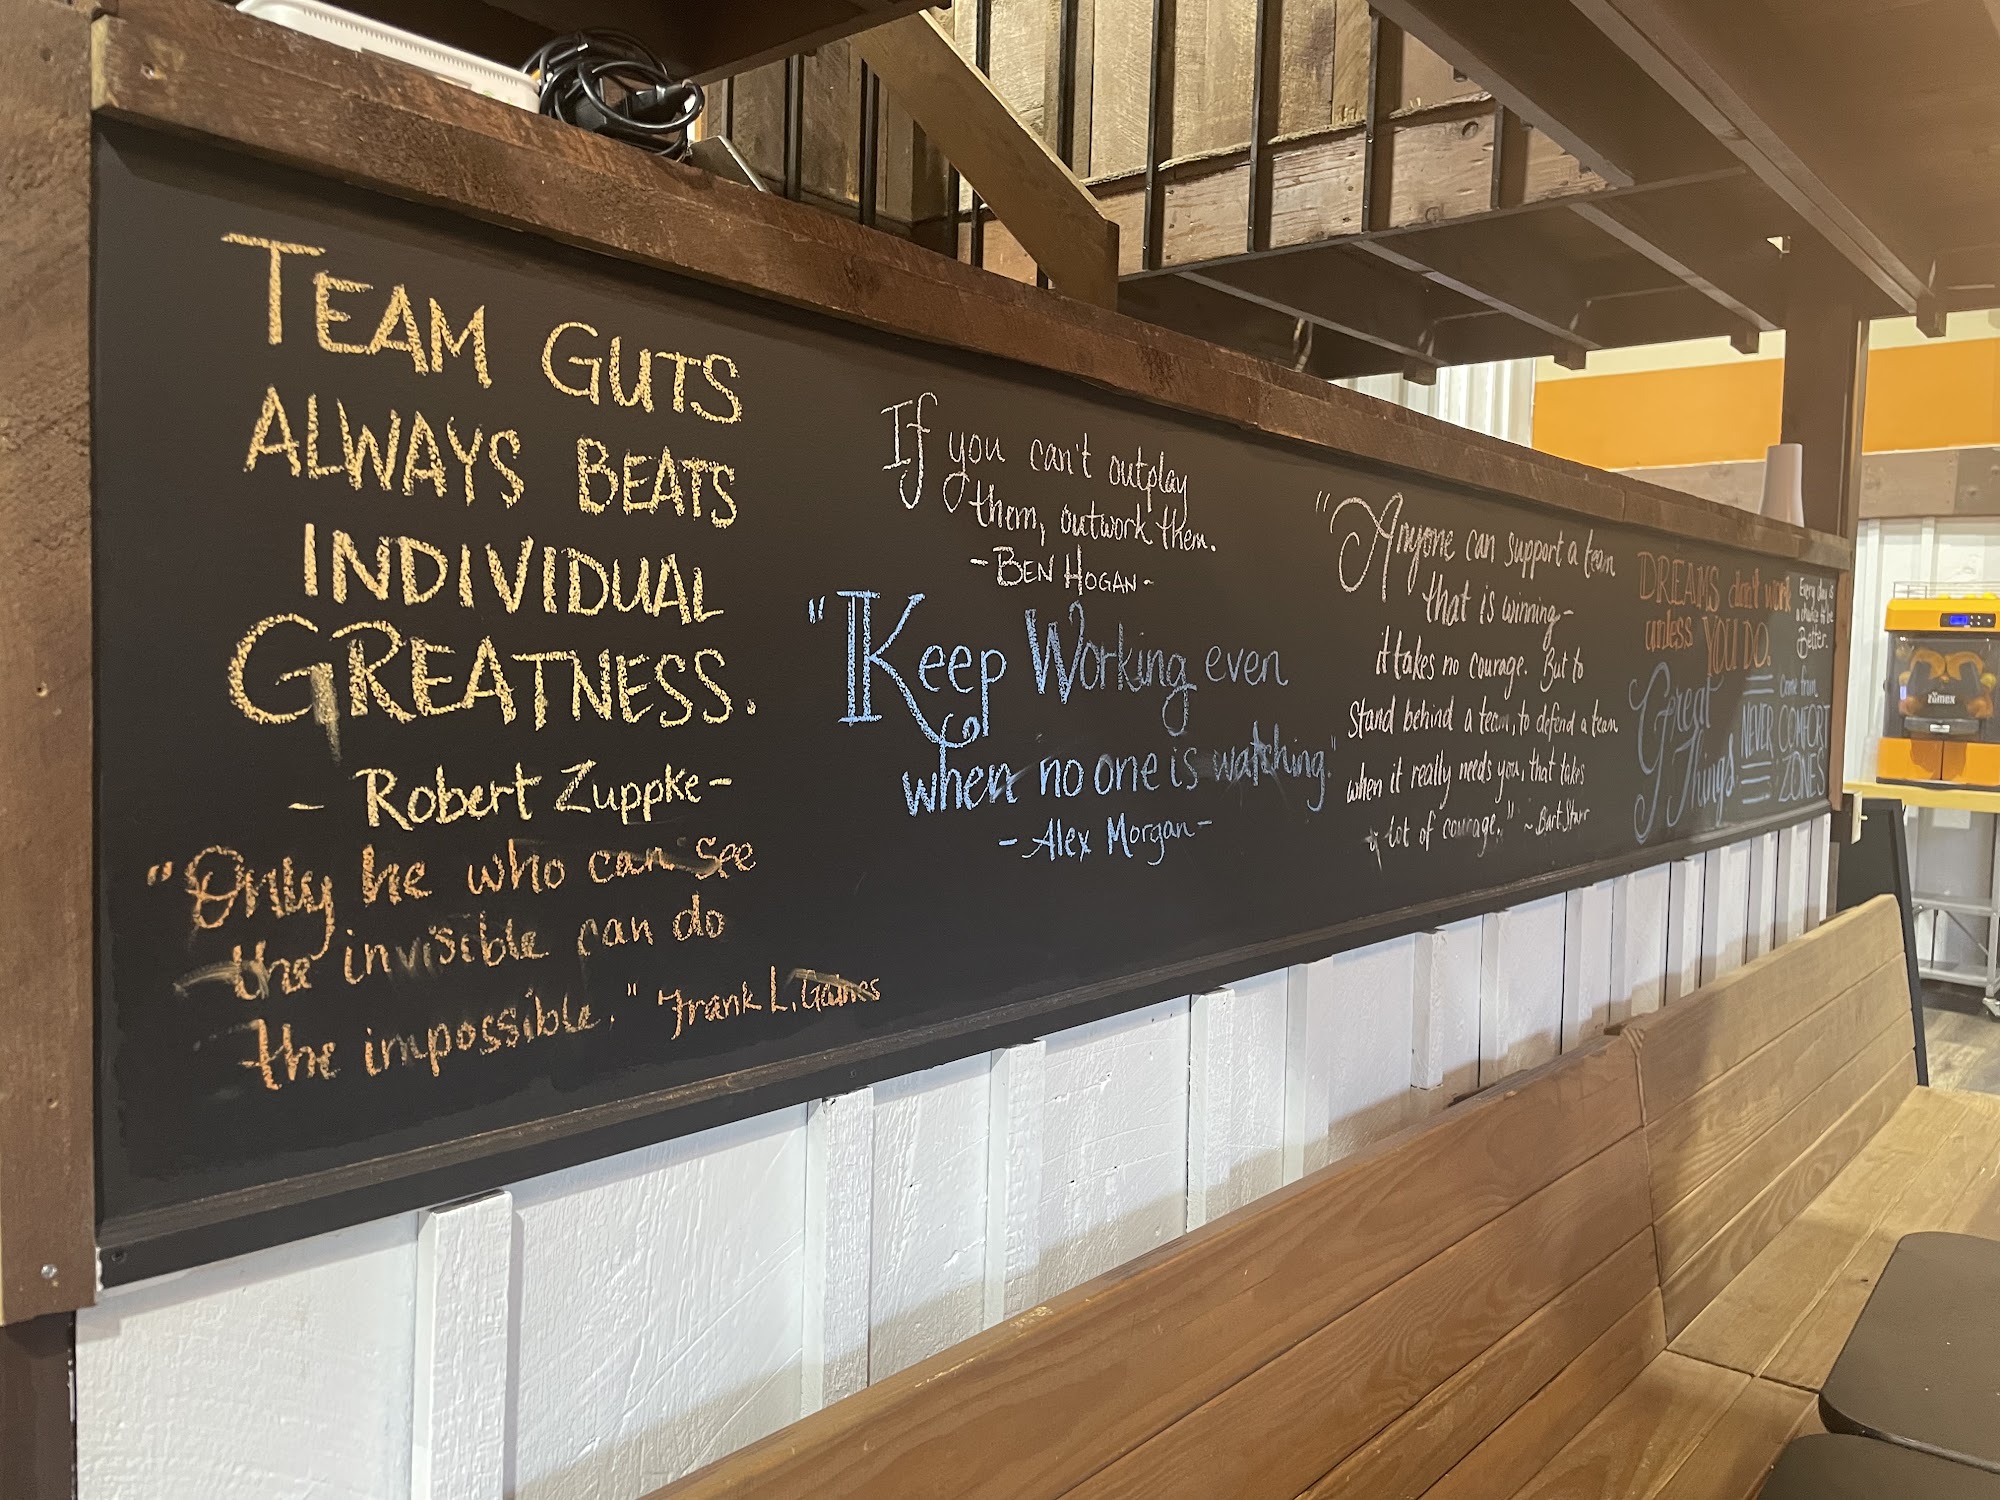 TEAM GUTS
ALWAYS BEATS
INDIVIDUAL
GREATNESS.
- Robert Zuppke -
"Only he who can see
the invisible can do
the impossible." Frank L. Gaines
If you can't outplay
them, outwork them.
- BEN HOGAN -
"Keep Working even
when no one is watching."
- Alex Morgan -
"Anyone can support a team
that is winning -
it takes no courage. But to
Stand behind a team, to defend a team
when it really needs you, that takes
a lot of courage." ~ Bart Starr
DREAMS don't work
unless YOU DO.
Every day is
a chance to be
Better.
Great
Things
NEVER
Come from
COMFORT
ZONES
zumex